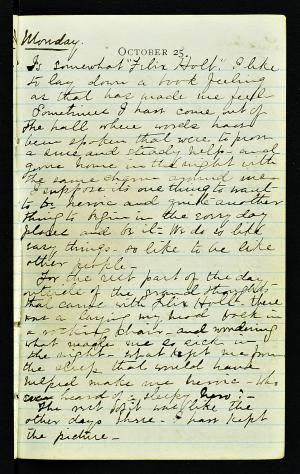 Monday.
OCTOBER 25
Is somewhat "Felix Holt". I like
to lay down a book feeling
as that has made me feel
Sometimes I have come out of
the hall where words had
been spoken that were to prove
a sure and steady help - and
gone home in the night with
the same charm around me
I suppose its one thing to want
to be heroic and quite another
thing to begin in the every day
places and be it - We do so like
easy things - so like to be like
other people -
For the rest part of the day
outside of the grand thoughts
that came with Felix Holt there
was a laying my head back in
a rocking chair - and wondering
what made me so sick in
the night - what kept me from
the sleep that would have
helped make me heroic - who
ever heard of a sleepy hero? -
The rest of it was like the
other days here - I have kept
the picture -